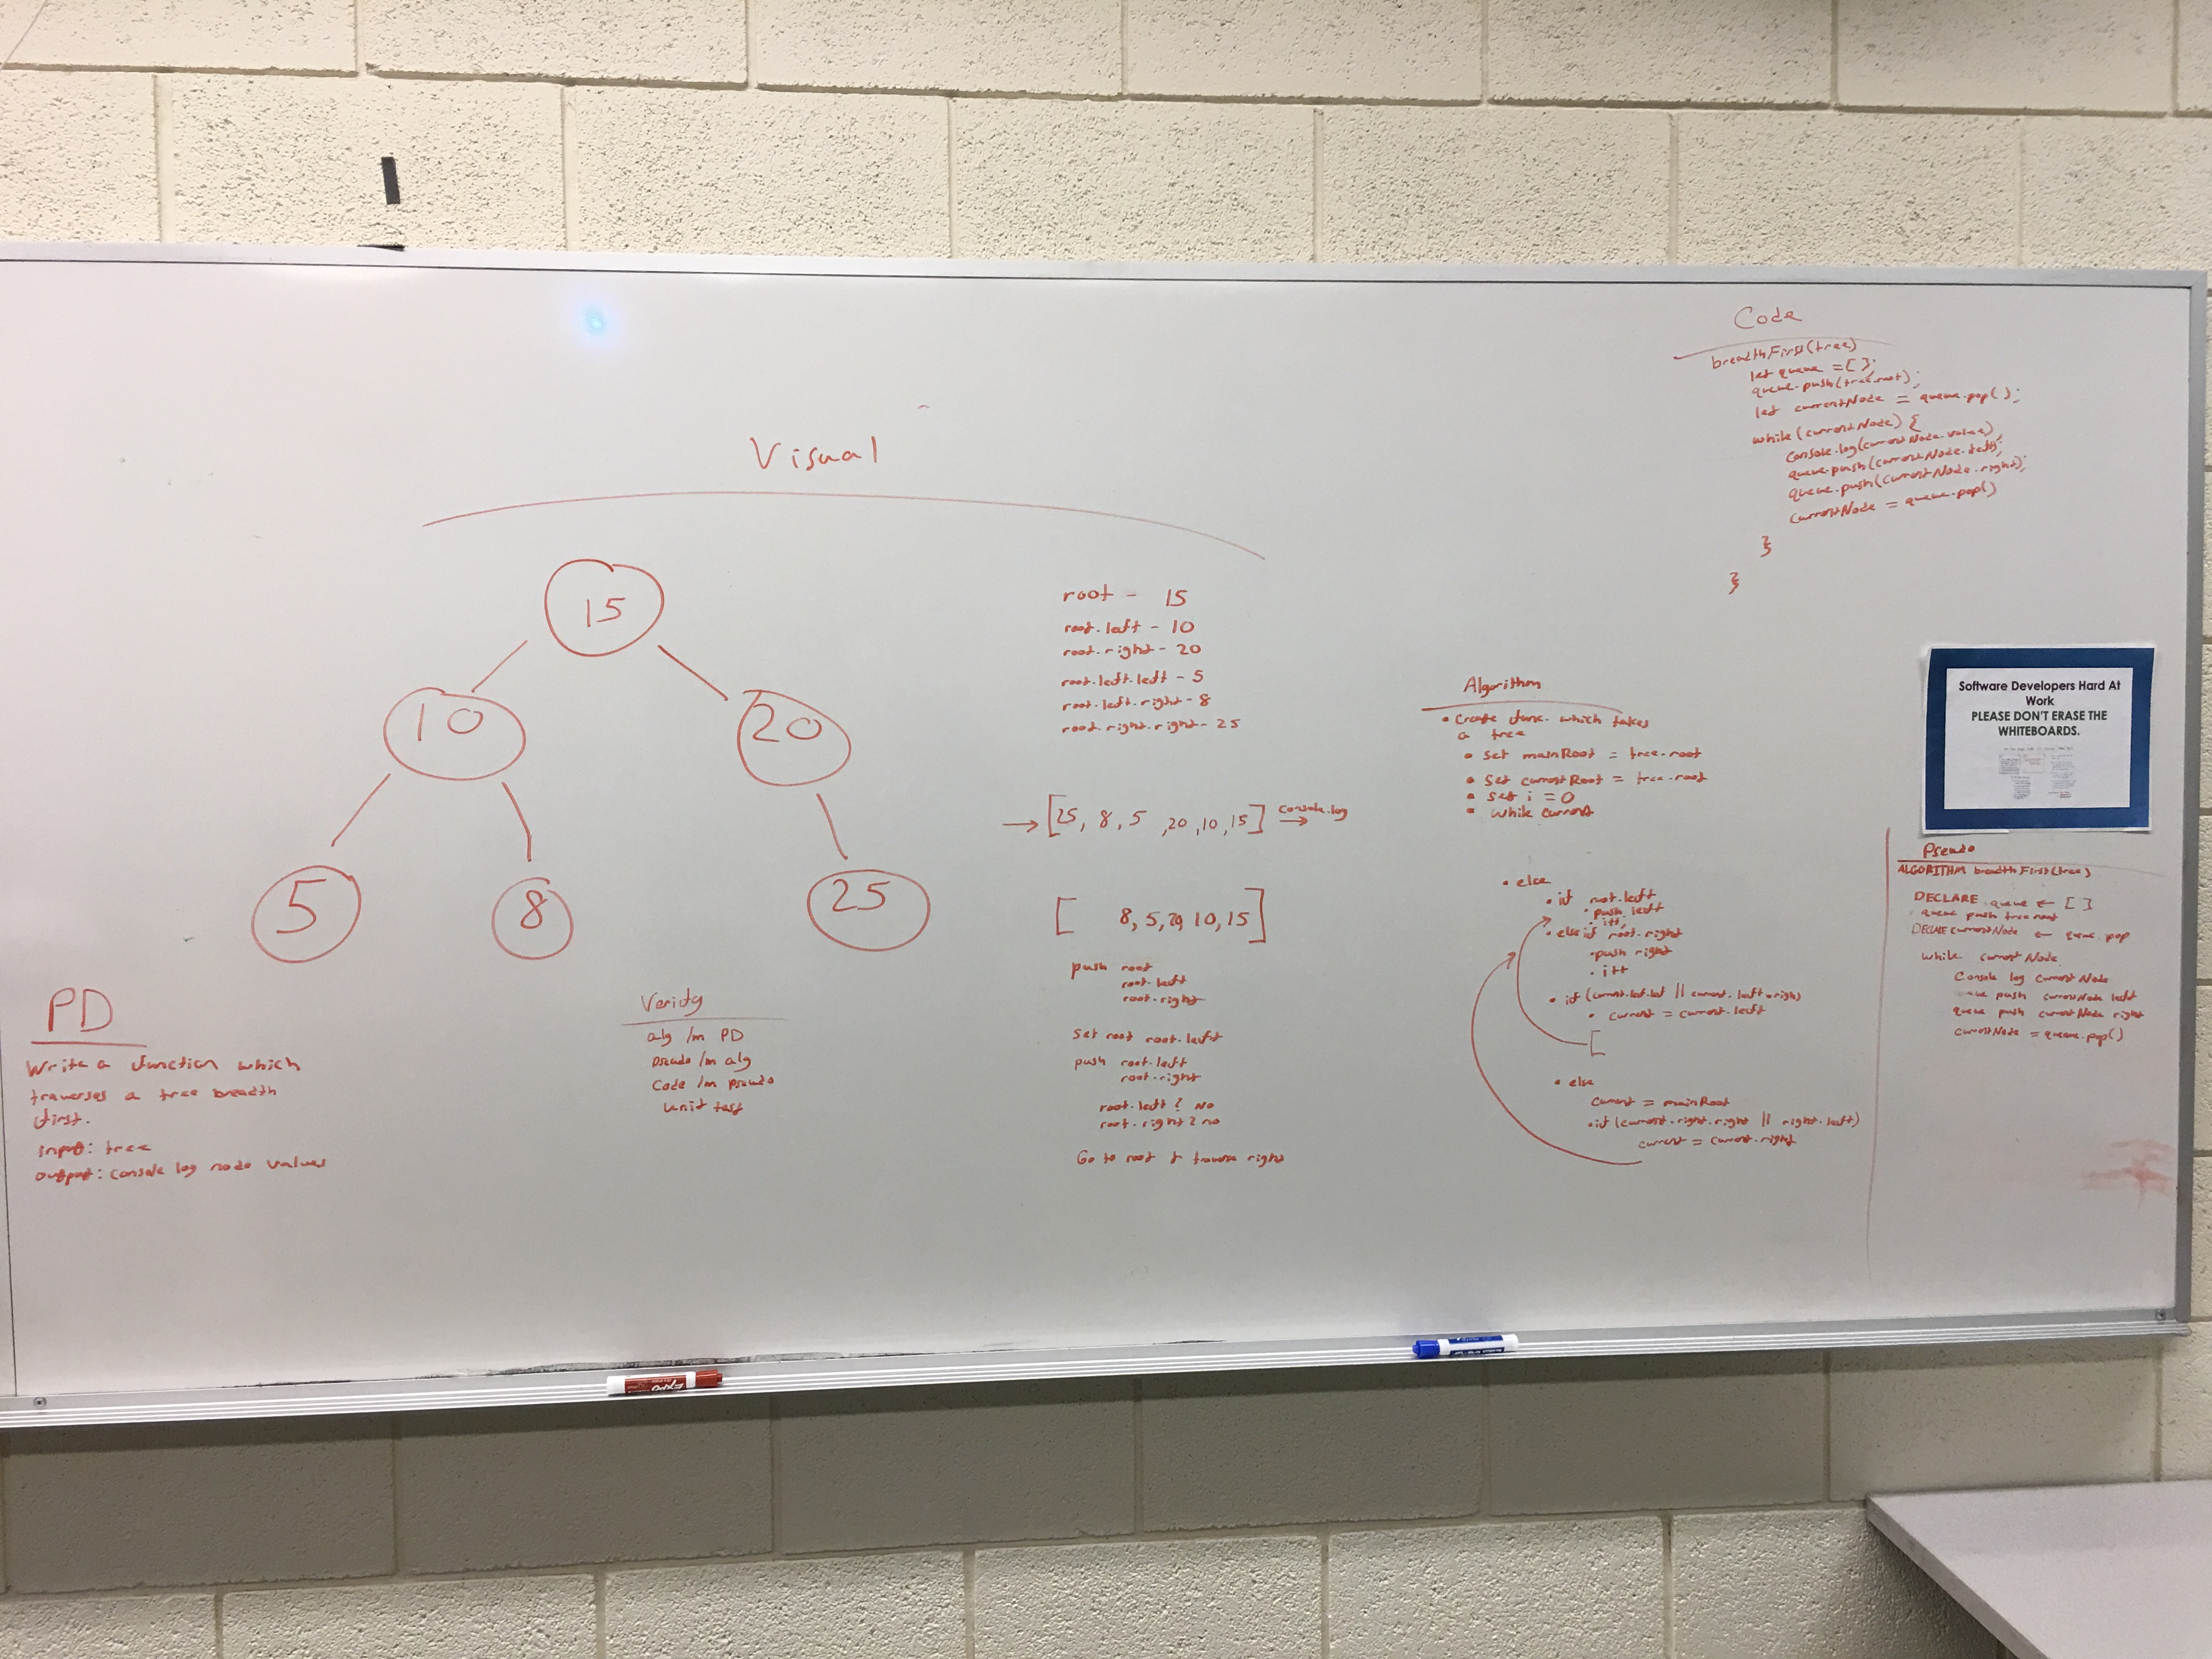 Visual
15
10
20
5
8
25
PD
Write a function which
traverses a tree breadth
first.
input: tree
output: console log node values
Veridy
alg /m PD
pseudo /m alg
Code /m pseudo
unit test
root - 15
root.left - 10
root.right - 20
root.left.left - 5
root.left.right - 8
root.right.right - 25
→ [25, 8, 5 ,20,10,15] console.log →
[ 8, 5, 20, 10, 15]
push root
root.left
root.right
Set root root.left
push root.left
root.right
root.left? No
root.right? no
Go to root & traverse right
Algorithm
• Create func. which takes
a tree
• Set mainRoot = tree.root
• Set currentRoot = tree.root
• Set i = 0
• While current
• else
• if root.left
• push left
• i++;
• else if root.right
• push right
• i++
• if (current.left.left || current.left.right)
• current = current.left
[
• else
current = mainRoot
• if (current.right.right || right.left)
current = current.right
Code
breadthFirst(tree)
let queue = [ ];
queue.push(tree.root);
let currentNode = queue.pop( );
while (currentNode) {
Console.log(currentNode.value);
queue.push(currentNode.left);
queue.push(currentNode.right);
CurrentNode = queue.pop()
}
}
Software Developers Hard At
Work
PLEASE DON'T ERASE THE
WHITEBOARDS.
Pseudo
ALGORITHM breadthFirst(tree)
DECLARE queue ← [ ]
queue push tree.root
DECLARE currentNode ← queue.pop
while currentNode
Console log currentNode
push currentNode left
queue push currentNode right
currentNode = queue.pop()
EXPO